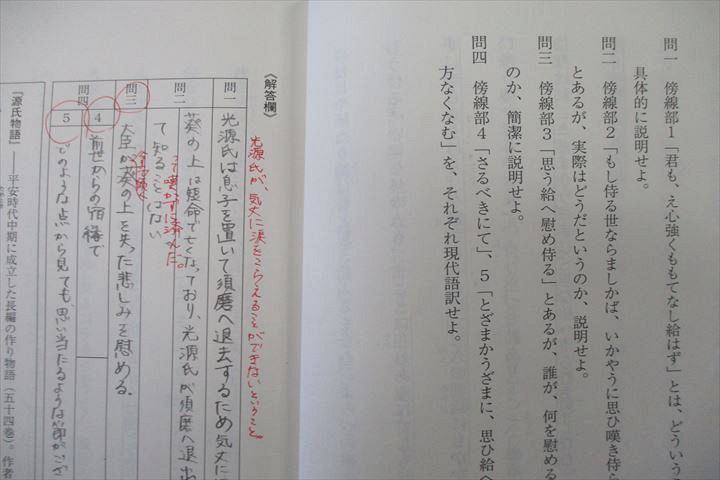 問一 傍線部1「君も、え心強くももてなし給はず」とは、どういう
具体的に説明せよ。
問二 傍線部2「もし侍る世ならましかば、いかやうに思ひ嘆き侍ら
とあるが、実際はどうだというのか、説明せよ。
問三 傍線部3「思う給へ慰め侍る」とあるが、誰が、何を慰める
のか、簡潔に説明せよ。
問四 傍線部4「さるべきにて」、5「とざまかうざまに、思ひ給へ
方なくなむ」を、それぞれ現代語訳せよ。
〈解答欄〉
光源氏が、気丈に涙をこらえることができないということ。
問一
光源氏は息子を置いて須磨へ退去するため気丈に
問二
葵の上は短命で亡くなっており、光源氏が須磨へ退出
て知ることはない
って嘆かずに済んだ。
問三
大臣が葵の上を失った悲しみを慰める。
問四
4
前世からの宿縁で
5
どのような点から見ても、思い当たるような節がござ
『源氏物語』── 平安時代中期に成立した長編の作り物語（五十四巻）。作者